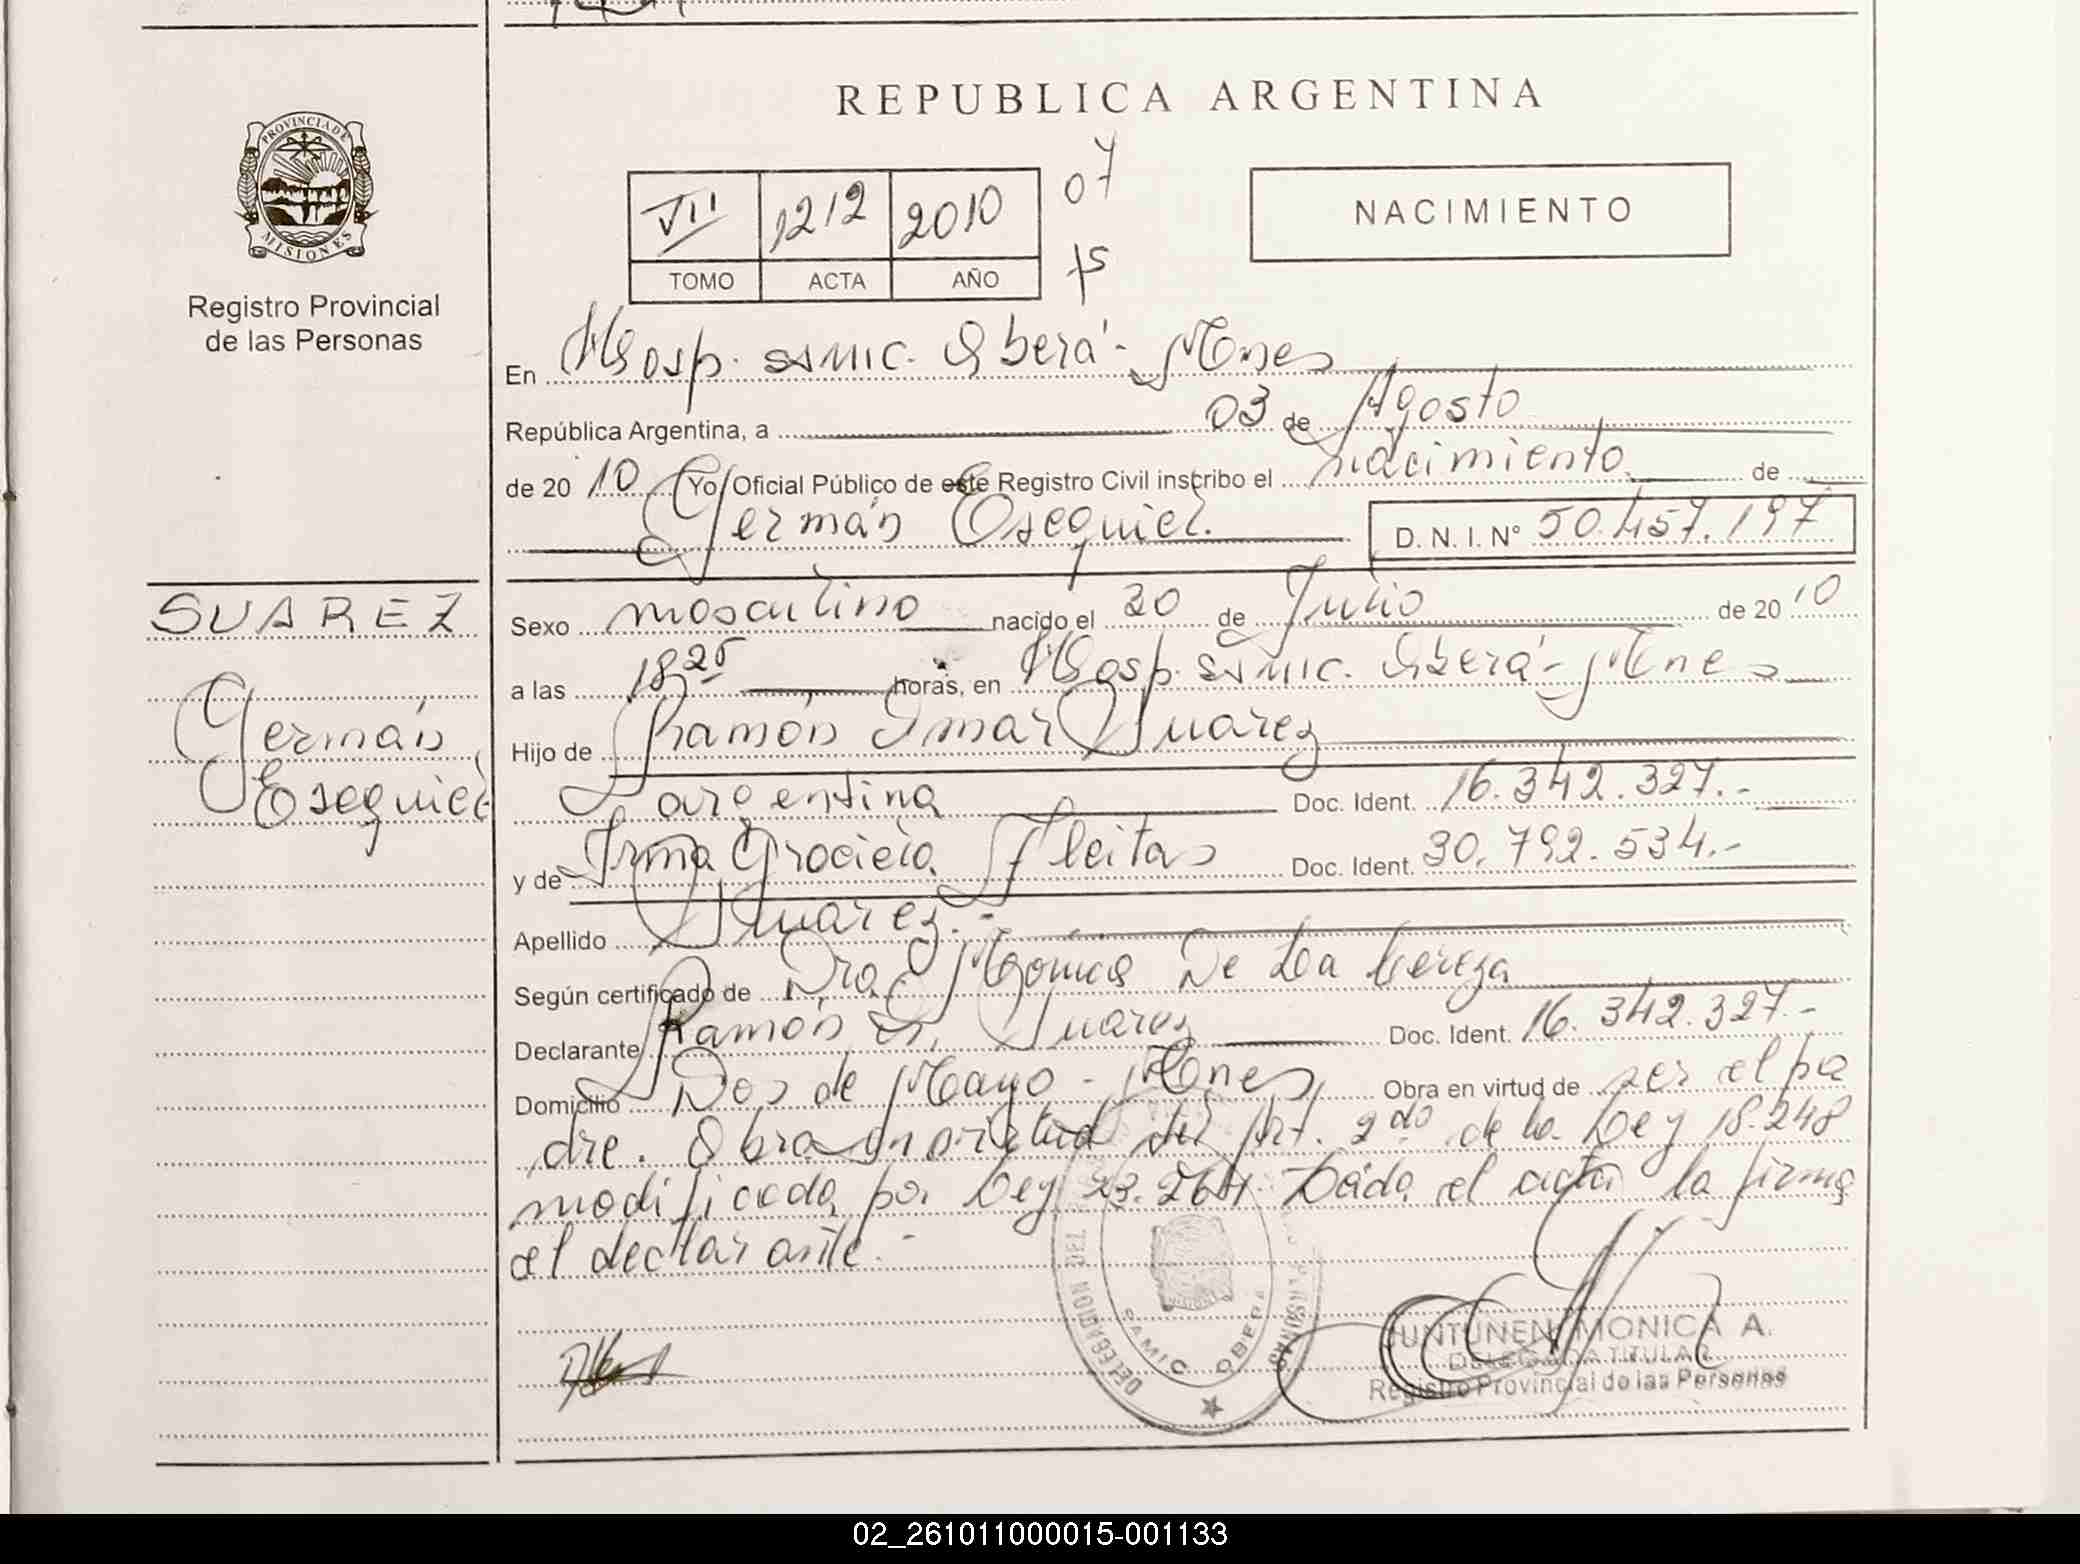 REPUBLICA ARGENTINA
PROVINCIA DE
MISIONES
Registro Provincial
de las Personas
VII 1212 2010
TOMO ACTA AÑO
07
15
NACIMIENTO
En Hosp. SAMIC. Oberá - Mnes
República Argentina, a 03 de Agosto
de 2010 Yo Oficial Público de este Registro Civil inscribo el nacimiento de
Germán Esequiel.
D. N. I. Nº 50.457.197
SUAREZ
Germán
Esequiel
Sexo masculino nacido el 30 de Julio de 2010
a las 18 25 horas, en Hosp. SAMIC. Oberá - Mnes
Hijo de Ramón Omar Suarez
argentina Doc. Ident. 16.342.327.-
y de Irma Graciela Fleitas Doc. Ident. 30.792.534.-
Apellido Suarez.-
Según certificado de Dra. Mónica De La
Declarante Ramón O. Suarez Doc. Ident. 16.342.327.-
Domicilio Dos de Mayo - Mnes Obra en virtud de ser el pa
dre. Obra en virtud del Art. 2do de la Ley 18.248
modificada por Ley 23.264. Leida el acta la firma
el declarante.-
DELEGACION DEL
SAMIC OBERA
JUNTUNEN MONICA A.
DELEGADA TITULAR
Registro Provincial de las Personas
02_261011000015-001133